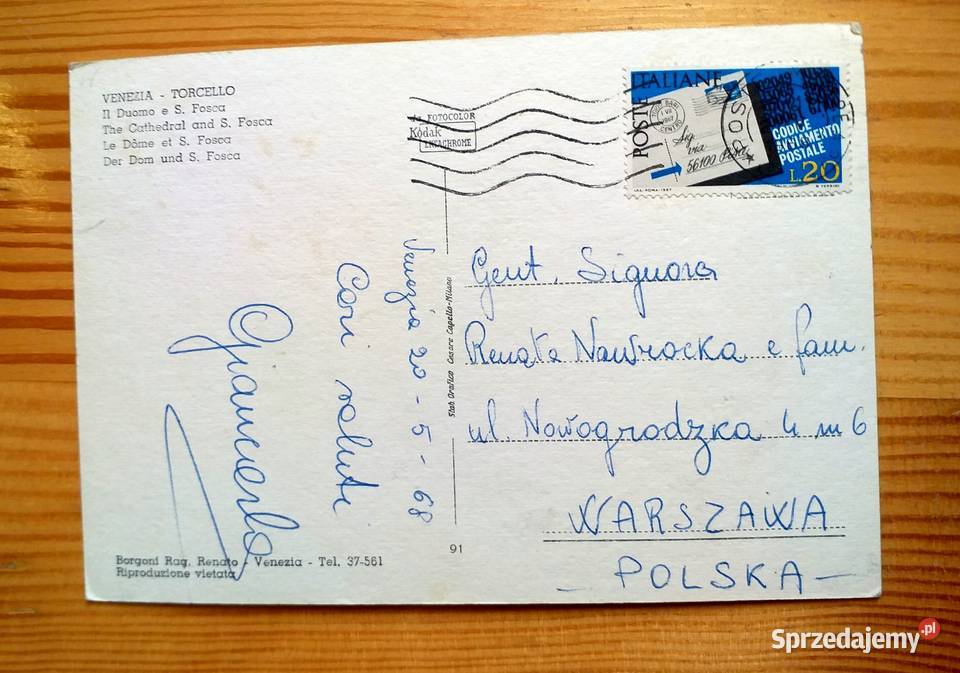 VENEZIA - TORCELLO
Il Duomo e S. Fosca
The Cathedral and S. Fosca
Le Dôme et S. Fosca
Der Dom und S. Fosca
da FOTOCOLOR
Kodak
EKTACHROME
POSTE ITALIANE
56100 Pisa
CODICE
AVVIAMENTO
POSTALE
L.20
Venezia 20-5-68
Cari saluti
Giancarlo
Gent. Signora
Renata Nawrocka e fam.
ul. Nowogrodzka 4 m 6
WARSZAWA
- POLSKA -
Stab Grafico Cesare Capello-Milano
91
Borgoni Rag. Renato - Venezia - Tel. 37-561
Riproduzione vietata
Sprzedajemy.pl